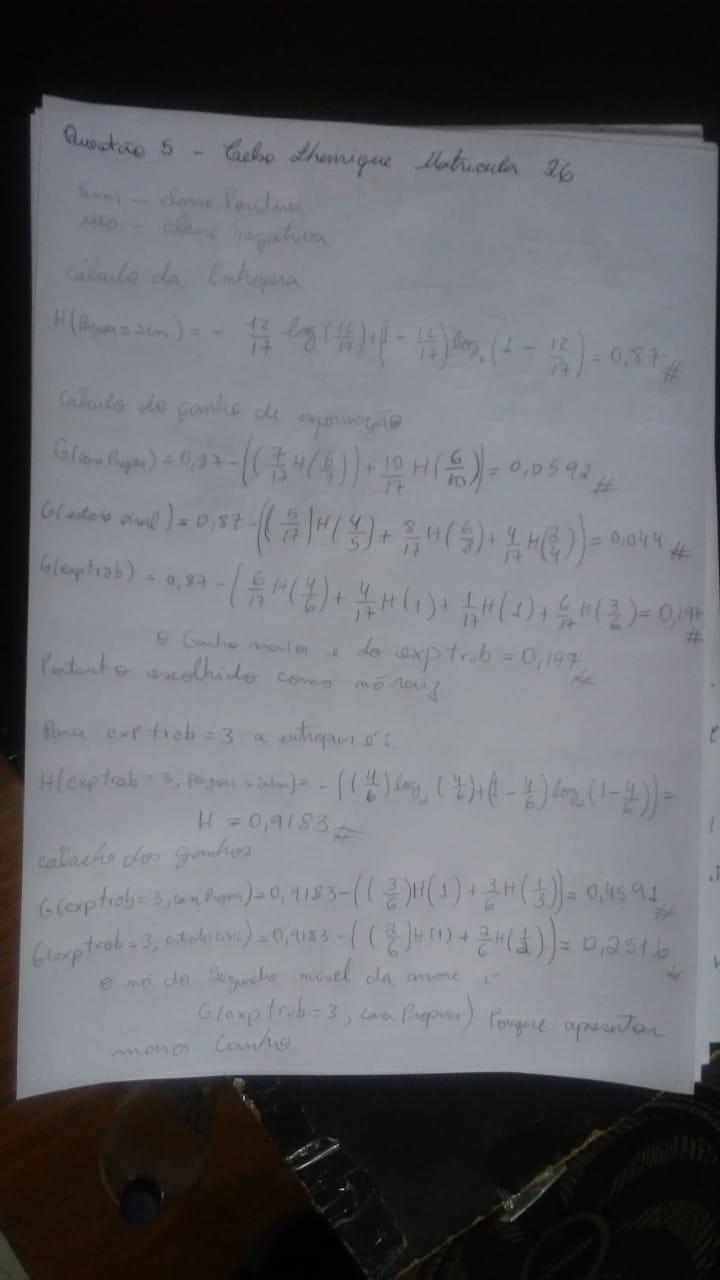 Questão 5 - Celso Lhenrique Matricula 26
Sim - classe Positiva
não - classe negativa
Cálculo da Entropia
H(Pagou=sim) = - 12/17 log(12/17)+(1 - 12/17)log₂(1 - 12/17) = 0,87 #
Calculo do ganho de informação
G(casa Propria) = 0,87-((7/17 H(6/7)) + 10/17 H(6/10)) = 0,0592 #
G(estado civil) = 0,87-((5/17)H(4/5) + 8/17 H(6/8) + 4/17 H(3/4)) = 0.044 #
G(exptrab) = 0,87 - (6/17 H(4/6) + 4/17 H(1) + 1/17 H(1) + 6/17 H(3/6) = 0,197 #
o Ganho maior e do exptrab = 0,197 #
Portanto escolhido como nó raiz
Para exp trab = 3 a entropia é:
H(exptrab = 3, Pagou = sim) = - ((4/6)log₂(4/6)+(1 - 4/6)log₂(1-4/6)) =
H = 0,9183 #
calculo dos ganhos
G(exptrab = 3, casa Propria)=0,9183-((3/6)H(1) + 3/6 H(1/3)) = 0,4591 #
G(exptrab = 3, estado civil) = 0,9183 - ((2/6)H(1) + 2/6 H(1/2)) = 0,2516
o nó do Segundo nivel da arvore é
G(exptrab = 3, casa Propria) Porque apresentar
maior Ganho